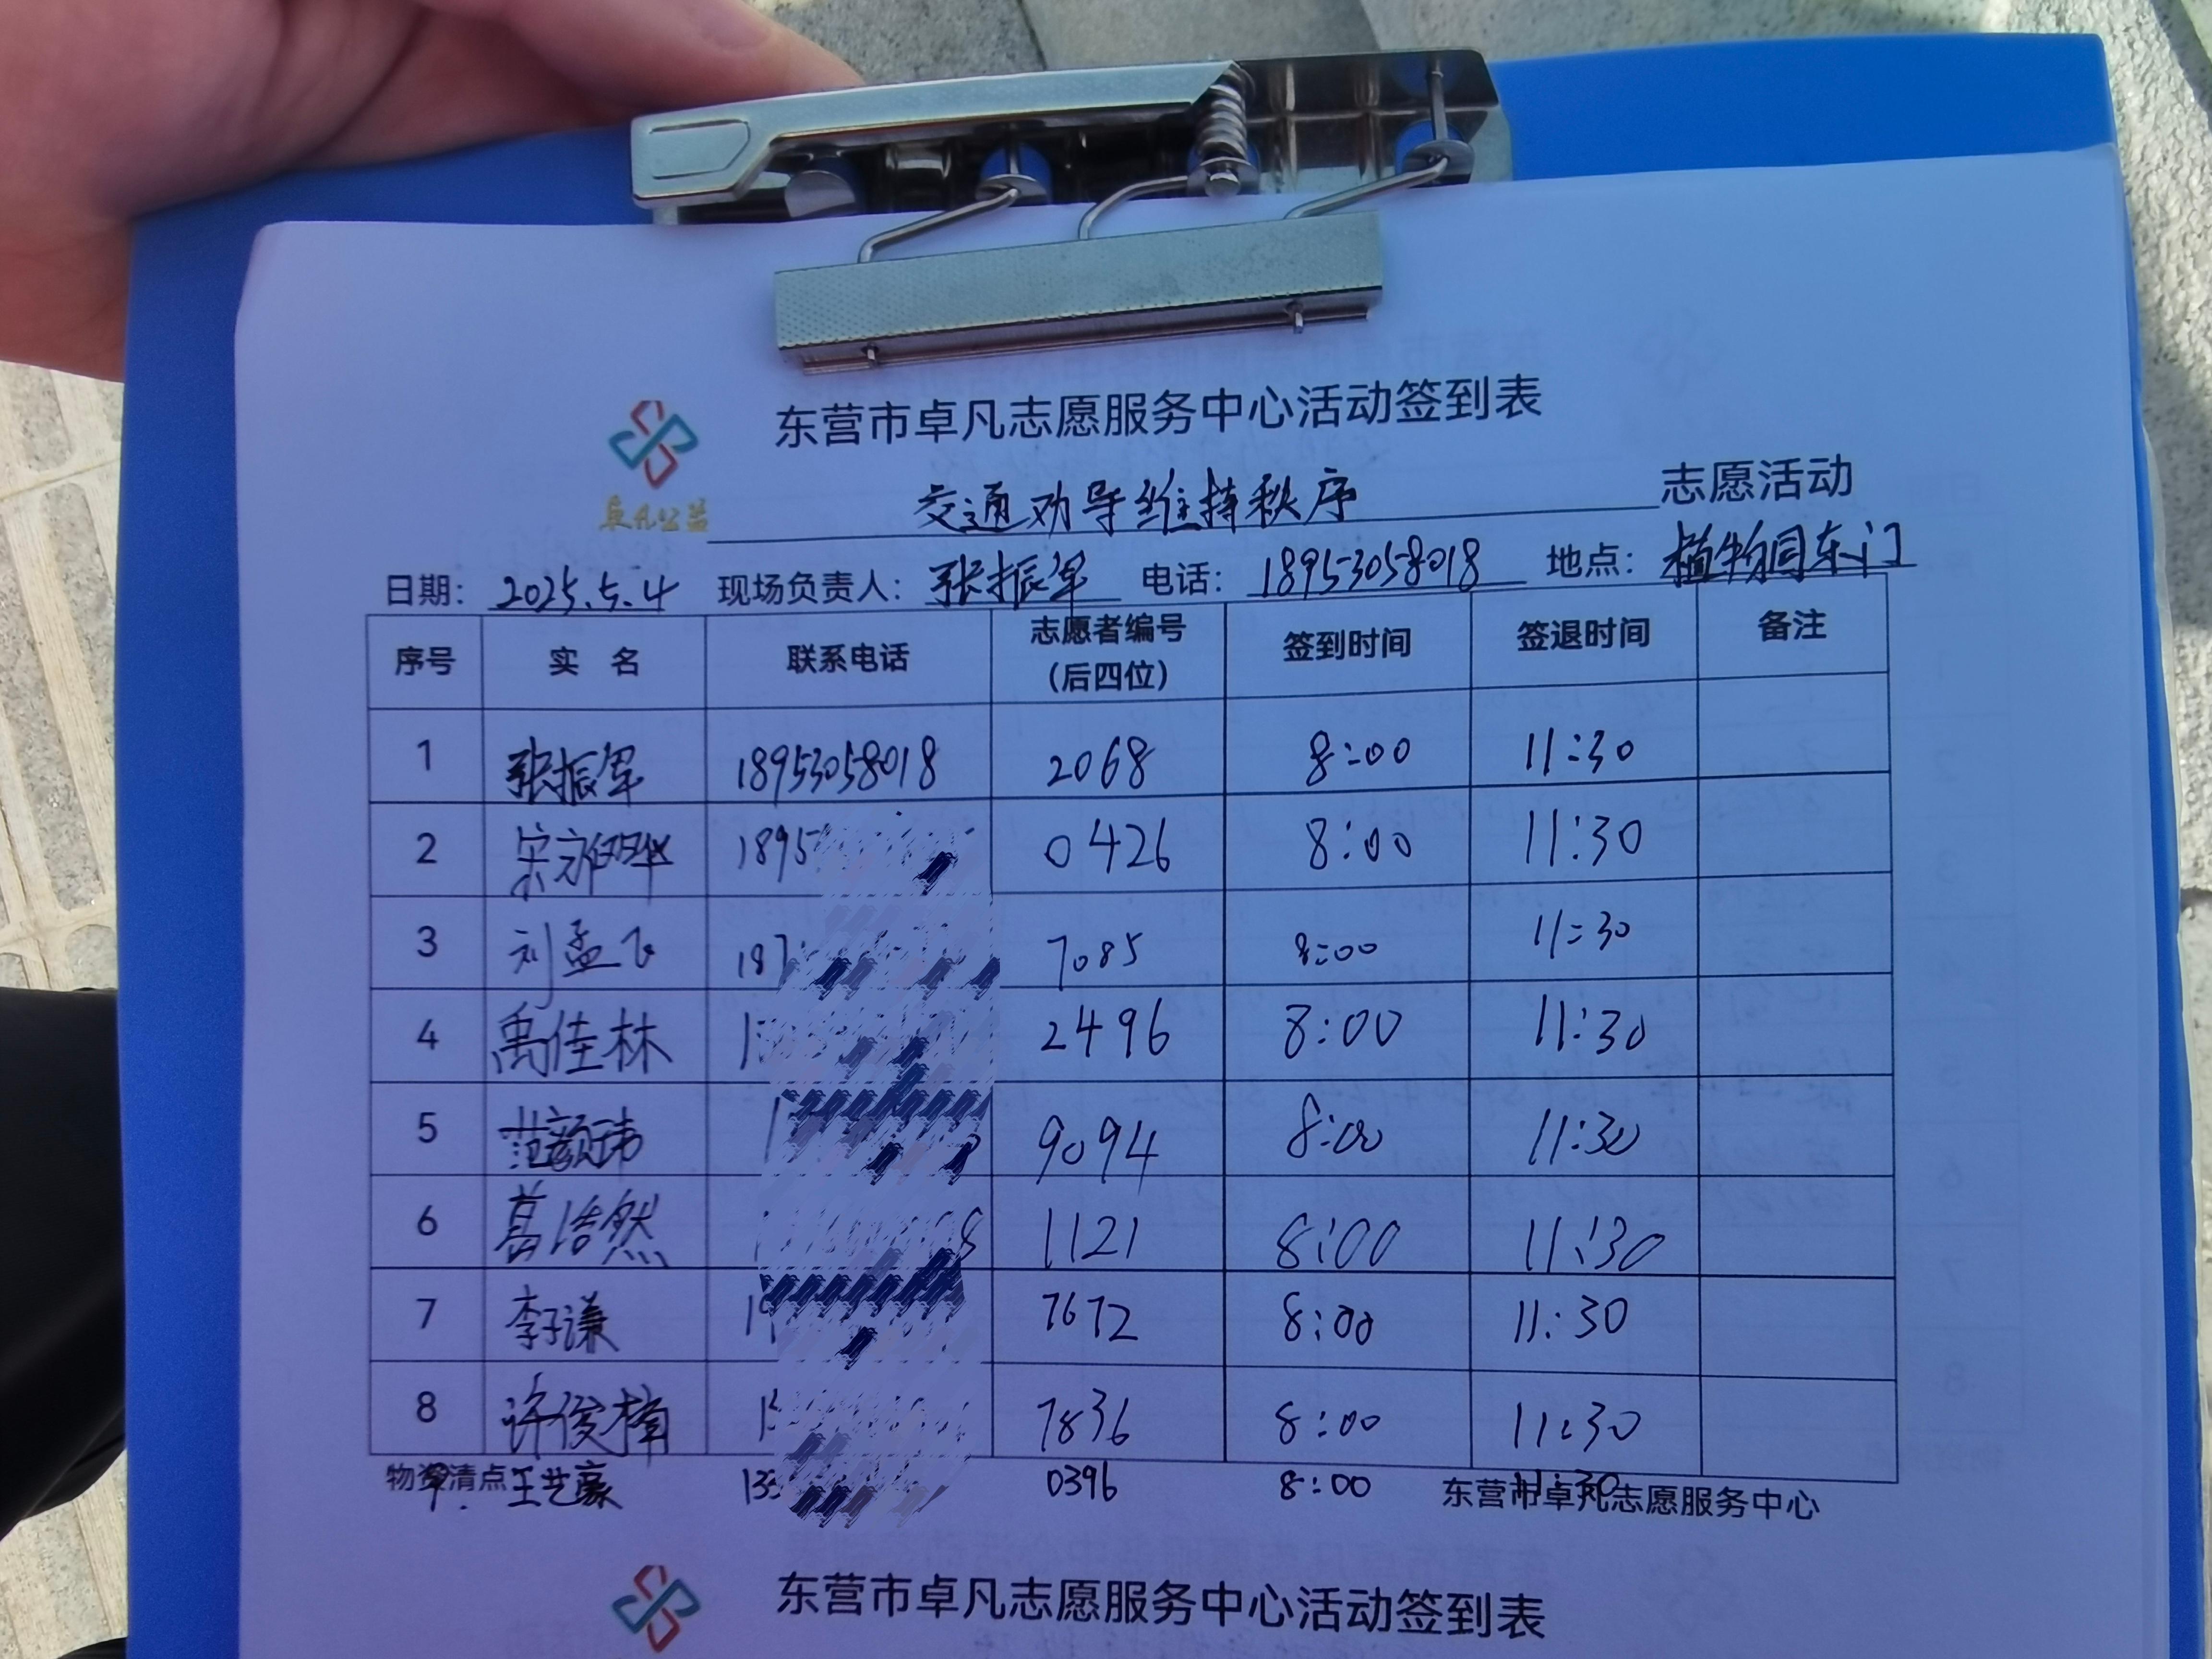 东营市卓凡志愿服务中心活动签到表
卓凡公益
交通劝导维持秩序 志愿活动
日期: 2025.5.4 现场负责人: 张振军 电话: 18953058018 地点: 植物园东门
序号 实 名 联系电话 志愿者编号 (后四位) 签到时间 签退时间 备注
1 张振军 18953058018 2068 8:00 11:30
2 1895 0426 8:00 11:30
3 刘孟飞 187 7085 8:00 11:30
4 禹佳林 1 2496 8:00 11:30
5 范颜玮 1 9094 8:00 11:30
6 葛浩然 8 1121 8:00 11:30
7 李子谦 19 7672 8:00 11:30
8 许俊楠 13 7836 8:00 11:30
物资清点 东营市卓凡志愿服务中心
9. 王艺豪 133 0396 8:00 11:30
东营市卓凡志愿服务中心活动签到表